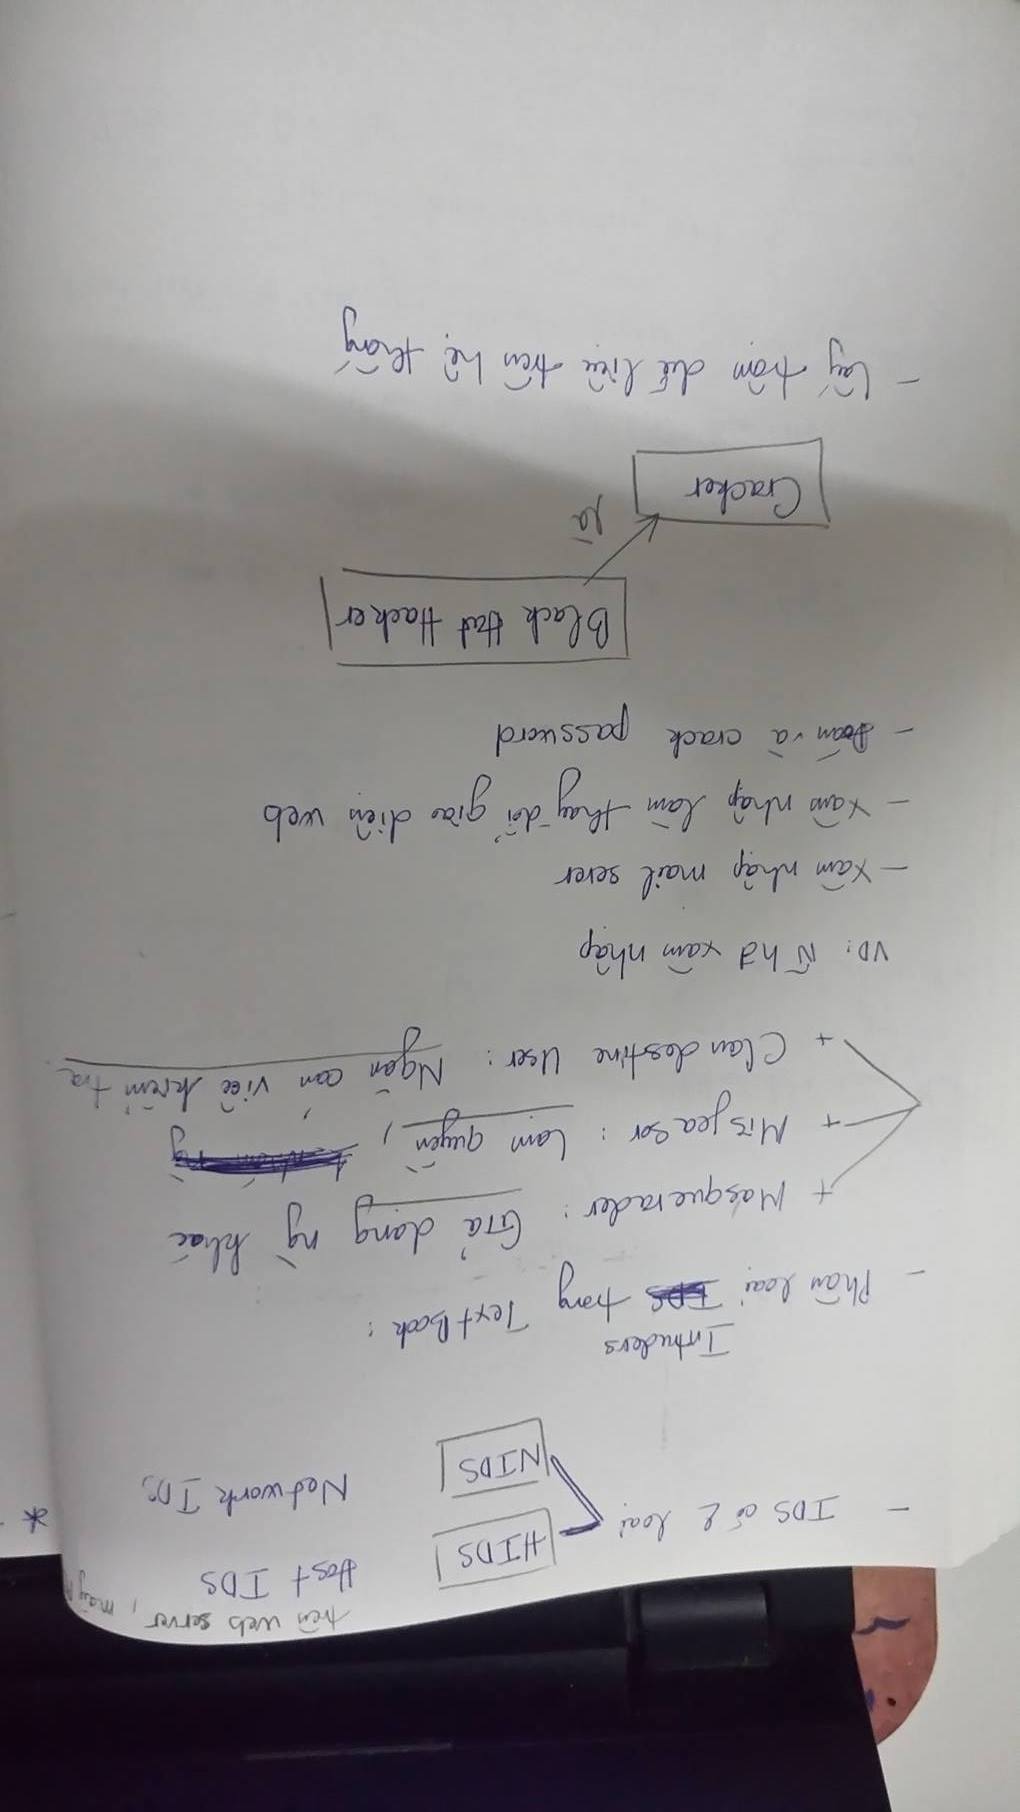 trên web server, máy
- IDS có 2 loại HIDS Host IDS
NIDS Network IDS
Intruders
- Phân loại IDS trong TextBook:
+ Masquerader: Giả dạng ng` khác
+ Misfeasor: Lạm quyền,
+ Clandestine User: Ngăn cản việc kiểm tra
VD: Ñ hđ xâm nhập
- Xâm nhập mail sever
- Xâm nhập làm thay đổi giao diện web
- Đoán và crack password
Black Hat Hacker
là
Cracker
- Lấy trộm dữ liệu trên hệ thống
*